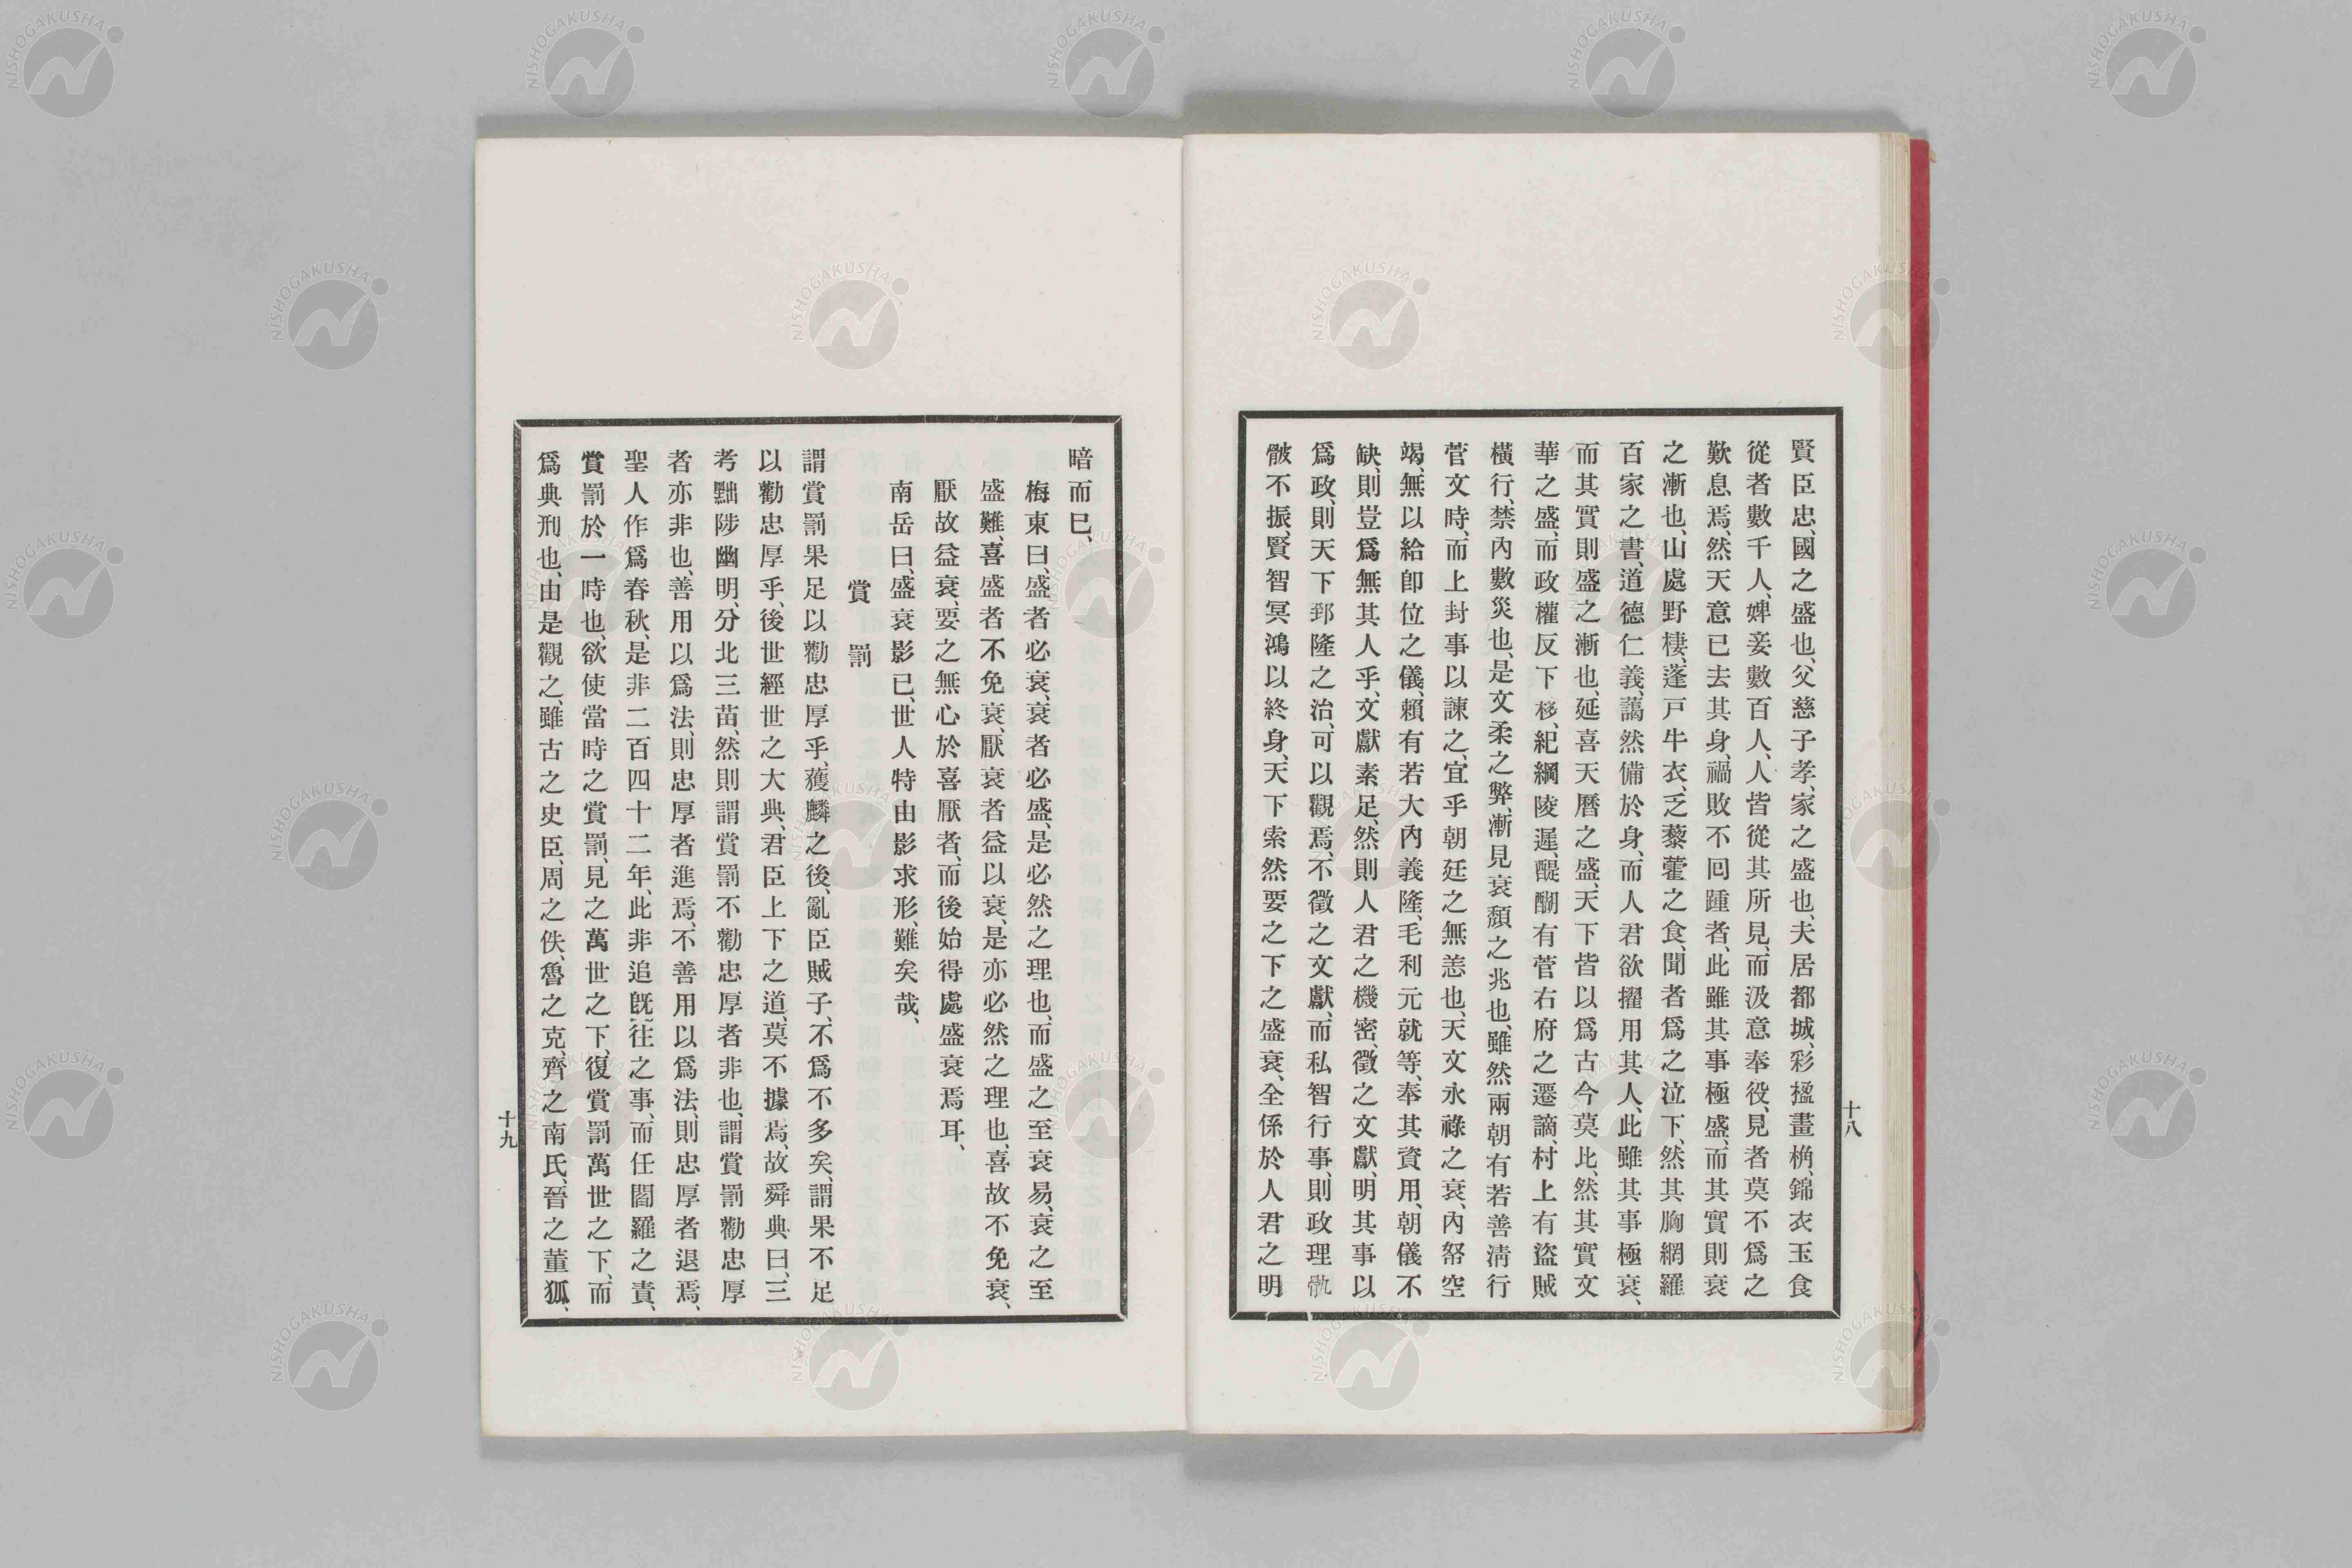 賢臣忠、國之盛也、父慈子孝、家之盛也、夫居都城、彩楹畫桷、錦衣玉食
從者數千人、婢妾數百人、人皆從其所見、而汲意奉役、見者莫不爲之
歎息焉、然天意已去其身、禍敗不囘踵者、此雖其事極盛、而其實則衰
之漸也、山處野棲、蓬戸牛衣、乏藜藿之食、聞者爲之泣下、然其胸網羅
百家之書、道德仁義、藹然備於身、而人君欲擢用其人、此雖其事極衰、
而其實則盛之漸也、延喜天曆之盛、天下皆以爲古今莫比、然其實文
華之盛、而政權反下移、紀綱陵遲、醍醐有菅右府之遷謫、村上有盜賊
橫行、禁內數災也、是文柔之弊、漸見衰頽之兆也、雖然兩朝有若善淸行
菅文時、而上封事以諫之、宜乎朝廷之無恙也、天文永祿之衰、內帑空
竭、無以給卽位之儀、賴有若大內義隆、毛利元就等、奉其資用、朝儀不
缺、則豈爲無其人乎、文獻素足、然則人君之機密、徵之文獻、明其事以
爲政、則天下郅隆之治、可以觀焉、不徵之文獻、而私智行事、則政理骫
骳不振、賢智冥鴻以終身、天下索然要之下之盛衰、全係於人君之明
十八
暗而已、
梅東曰、盛者必衰、衰者必盛、是必然之理也、而盛之至衰易、衰之至
盛難、喜盛者不免衰、厭衰者益以衰、是亦必然之理也、喜故不免衰、
厭故益衰、要之無心於喜厭者、而後始得處盛衰焉耳、
南岳曰、盛衰影已、世人特由影求形、難矣哉、
賞罰
謂賞罰果足以勸忠厚乎、獲麟之後、亂臣賊子、不爲不多矣、謂果不足
以勸忠厚乎、後世經世之大典、君臣上下之道、莫不據焉、故舜典曰、三
考黜陟幽明、分北三苗、然則謂賞罰不勸忠厚者非也、謂賞罰勸忠厚
者亦非也、善用以爲法、則忠厚者進焉、不善用以爲法、則忠厚者退焉、
聖人作爲春秋、是非二百四十二年、此非追旣往之事、而任閻羅之責、
賞罰於一時也、欲使當時之賞罰、見之萬世之下、復賞罰萬世之下、而
爲典刑也、由是觀之、雖古之史臣、周之佚、魯之克、齊之南氏、晉之董狐、
十九